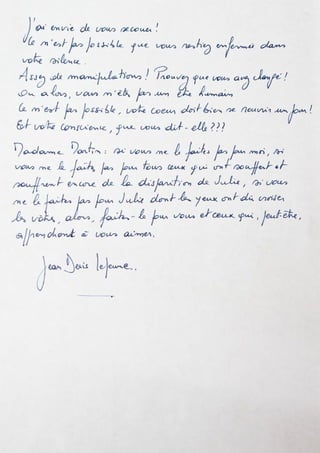 J'ai envie de vous secouer !
Ce n'est pas possible que vous restiez enfermée dans
votre silence.
Assez de manipulations ! Prouvez que vous avez changé !
Ou alors, vous n'êtes pas un être humain
Ce n'est pas possible, votre coeur doit bien se rouvrir un jour !
Et votre conscience, que vous dit-elle ???
Madame Martin : si vous ne le faites pas pour moi, si
vous ne le faites pas pour tous ceux qui ont souffert et
souffrent encore de la disparition de Julie, si vous
ne le faites pas pour Julie dont les yeux ont dû croiser
les vôtres, alors, faites-le pour vous et ceux qui, peut-être,
apprendront à vous aimer.
Jean Denis Lejeune.